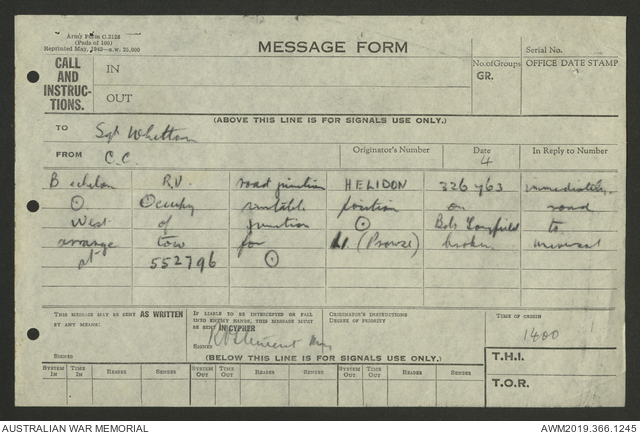 Army Form C.2128
(Pads of 100)
MESSAGE FORM
Serial No.
CALL AND INSTRUCTIONS.
IN
OUT
No. of Groups
GR.
OFFICE DATE STAMP
(ABOVE THIS LINE IS FOR SIGNALS USE ONLY.)
TO Sgt Whettam
FROM C.C.
Originator's Number
Date
4
In Reply to Number
B echelon R.V. road junction HELIDON 326763 immediately
⊙ Occupy suitable position on road
West of junction ⊙ Bob Longfield to
arrange tow for (Prowse) broken universal
at 552796 ⊙
THIS MESSAGE MAY BE SENT AS WRITTEN
BY ANY MEANS.
SIGNED
IF LIABLE TO BE INTERCEPTED OR FALL
INTO ENEMY HANDS, THIS MESSAGE MUST
BE SENT IN CIPHER
SIGNED
ORIGINATOR'S INSTRUCTIONS
DEGREE OF PRIORITY
TIME OF ORIGIN
1400
(BELOW THIS LINE IS FOR SIGNALS USE ONLY.)
T.H.I.
T.O.R.
SYSTEM IN
TIME IN
READER
SENDER
SYSTEM OUT
TIME OUT
READER
SENDER
SYSTEM OUT
TIME OUT
READER
SENDER
AUSTRALIAN WAR MEMORIAL
AWM2019.366.1245